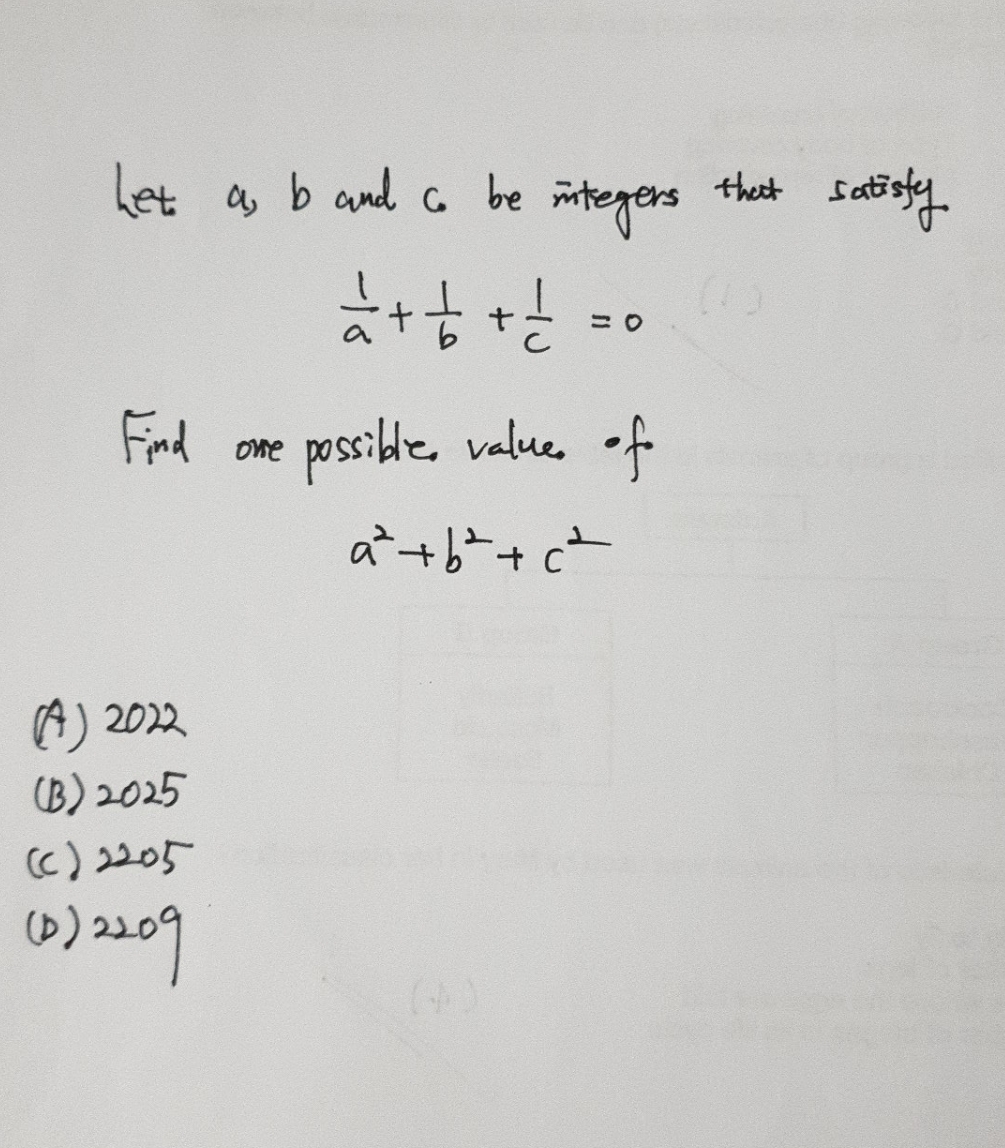 Let a, b and c be integers that satisfy
1/a + 1/b + 1/c = 0
Find one possible value of
a² + b² + c²
(A) 2022
(B) 2025
(C) 2205
(D) 2209